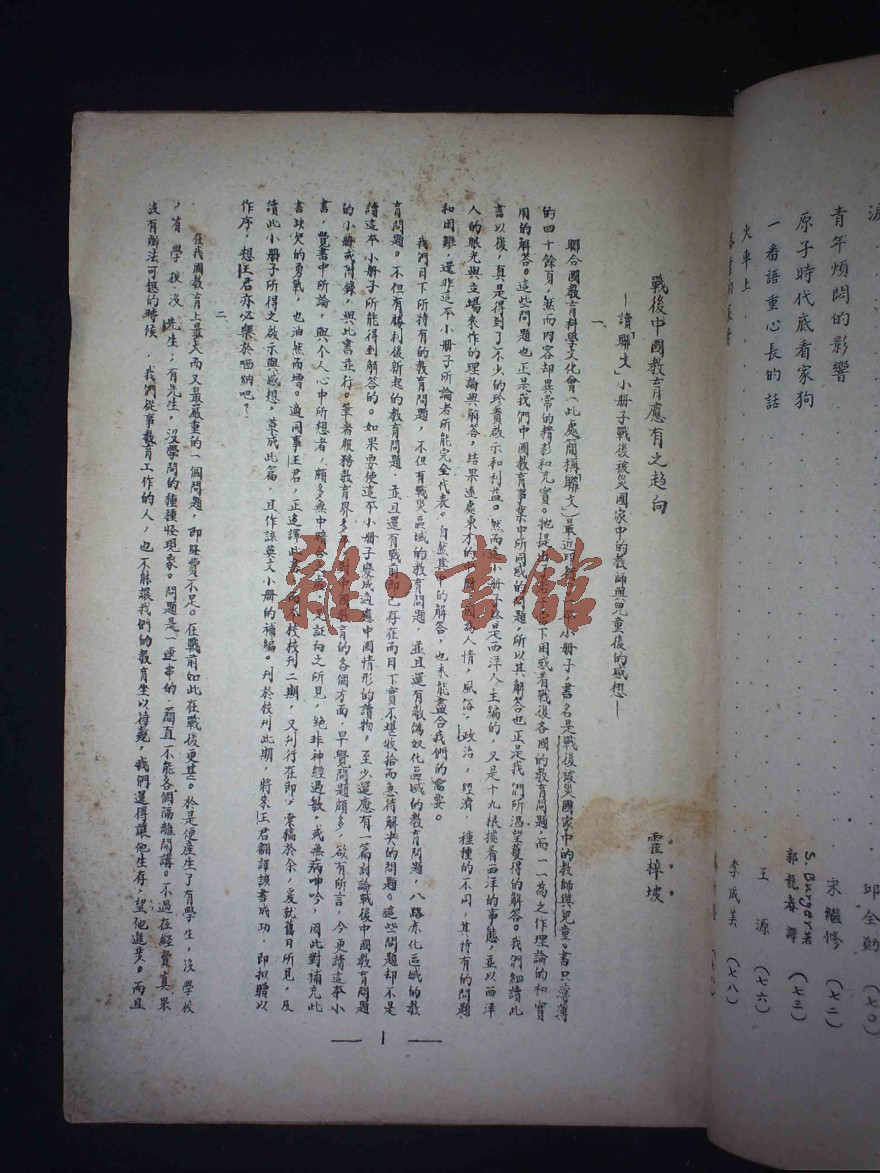 淚
邱全勛(七〇)
青年煩悶的影響
宋繼修(七二)
原子時代底看家狗
S. Burger著
郭龍春譯(七三)
一番語重心長的話
王源(七六)
火車上
李成美(七八)
戰後中國教育應有之趨向
—讀「聯文」小冊子戰後被災國家中的教師與兒童後的感想—
霍梓坡
一、
聯合國教育科學文化會(此處簡稱聯文)最近印小冊子,書名是戰後被災國家中的教師與兒童。書只薄薄
的四十餘頁,然而內容却異常的精彩和充實。牠提出下困惑着戰後各國的教育問題,而一一為之作理論的和實
用的解答。這些問題也正是我們中國教育事業中所同感的問題,所以其解答也正是我們所渴望獲得的解答。我們細讀此
書以後,真是得到了不少的珍貴啟示和利益。然而這小冊子終是西洋人主編的,又是十九根據着西洋的事態,並以西洋
人的眼光與立場來作的理論與解答,結果遠處東方的中國,因為人情,風俗,政治,經濟,種種的不同,其特有的問題
和困難,還非這本小冊子所論者所能完全代表。自然其中的解答,也未能盡合我們的需要。
我們目下所特有的教育問題,不但有戰災區域的教育問題,並且還有敵偽奴化區域的教育問題,八路赤化區域的教
育問題。不但有勝利後新起的教育問題,並且還有戰前即已存在而目下實不堪收拾而急待解決的問題。這些問題却不是
讀這本小冊子所能得到解答的。如果要使這本小冊子變成適應中國情形的讀物,至少還應有一篇討論戰後中國教育問題
的小冊或附錄,與此書並行。筆者服務教育界多對中國教育的各個方面,早覺問題頗多,欲有所言,今更讀這本小
書,覺書中所論,與個人心中所想者,頗多無中暗合之處,足証向之所見,絕非神經過敏,或無病呻吟,因此對補充此
書缺欠的勇氣,也油然而增。適同事王君,正迻譯此書,而本校校刊二期,又刊行在即,索稿於余,爰就舊日所見,及
讀此小冊子所得之啟示與感想,草成此篇,且作該英文小冊的補編。刊於校刊此期,將來王君翻譯該書成功,即擬贈以
作序,想王君亦必樂於哂納吧?
二、
在我國教育上最大而又最嚴重的一個問題,即經費不足。在戰前如此在戰後更甚。於是便產生了有學生,沒學校
,有學校沒先生;有先生,沒學問的種種怪現象。問題是一連串的,簡直不能各個隔離開講。不過在經費真果
沒有辦法可想的時候,我們從事教育工作的人,也不能讓我們的教育坐以待斃,我們還得讓他生存,望他進步。而且
— 1 —
雜·書館